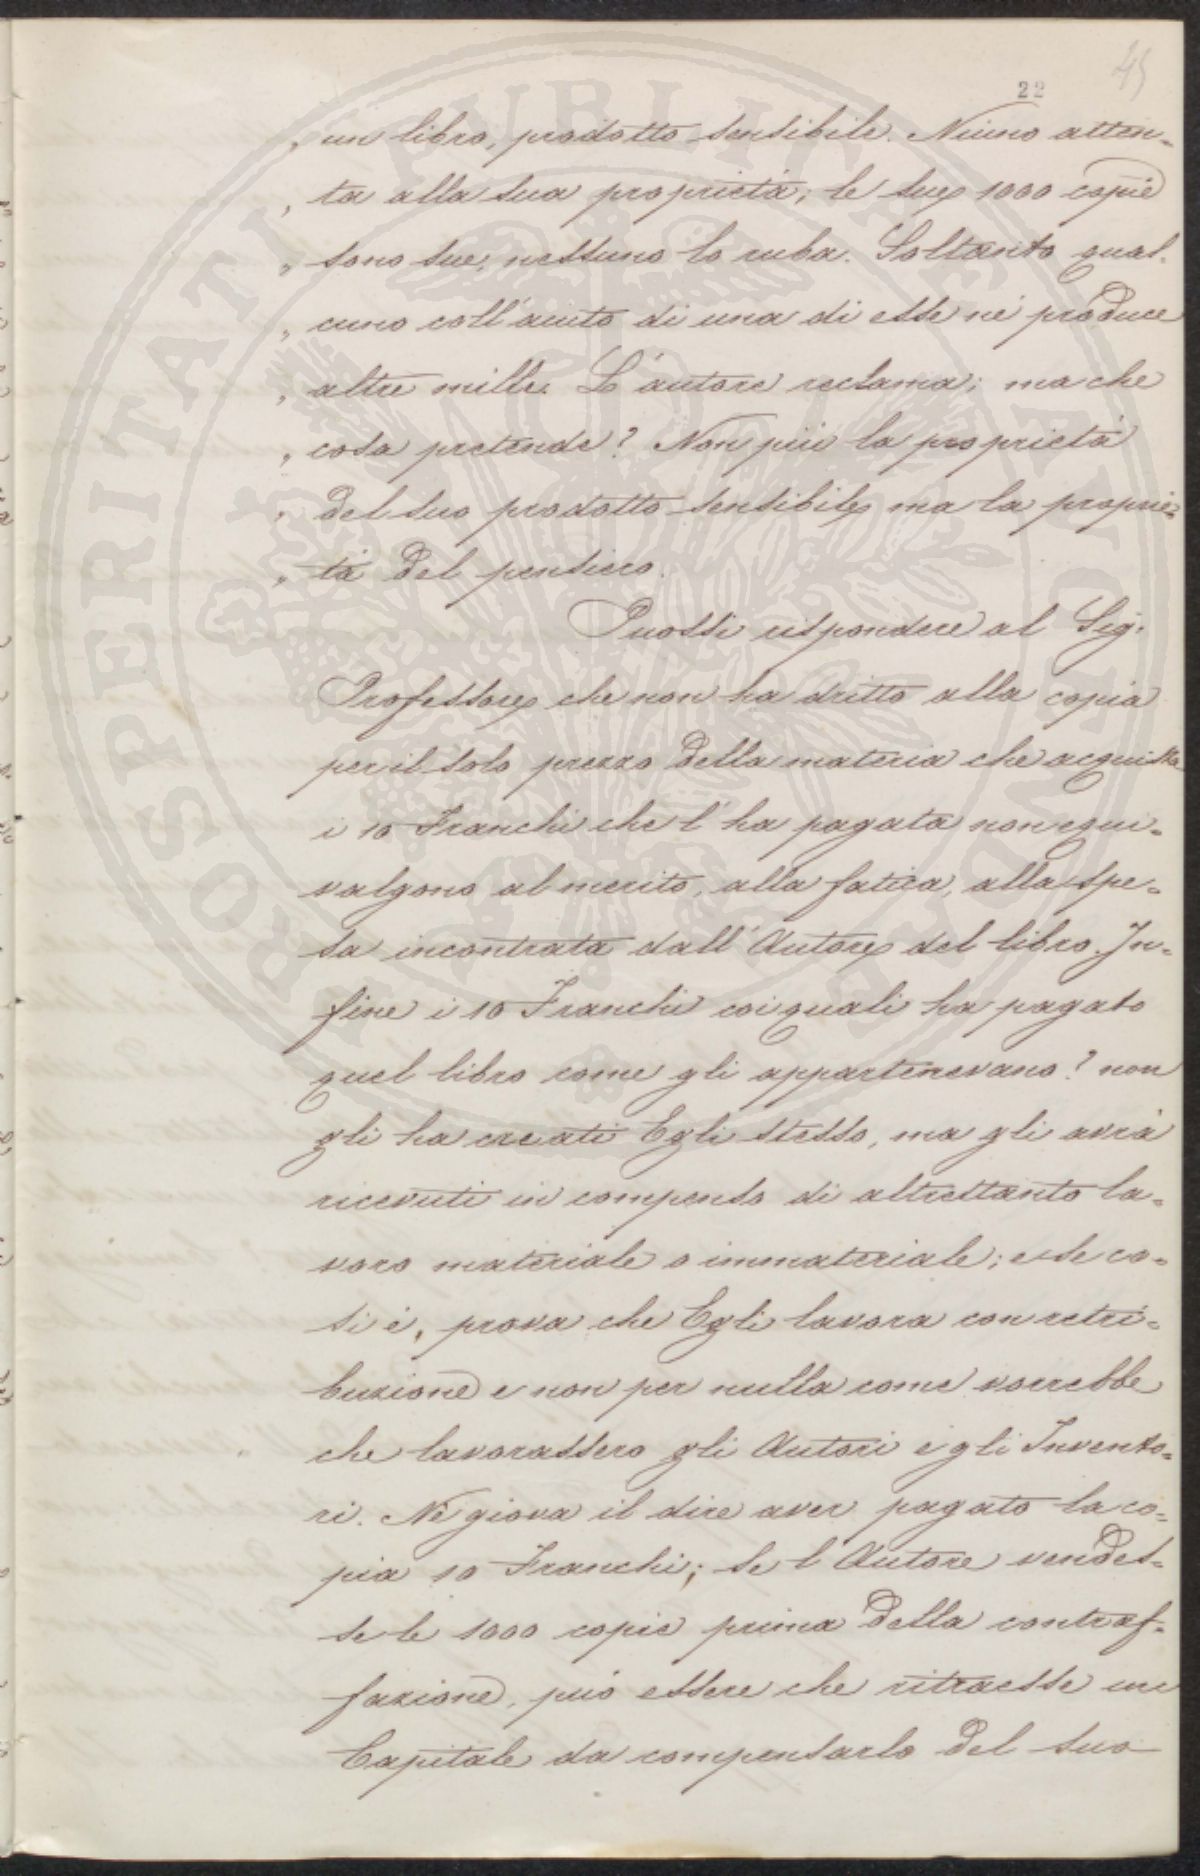 45
22
„ un libro, prodotto sensibile. Niuno atten-
„ ta alla sua proprietà; le sue 1000 copie
„ sono sue; nessuno lo ruba. Soltanto qual-
„ cuno coll'aiuto di una di esse ne produce
„ altre mille. L'autore reclama; ma che
„ cosa pretende? Non più la proprietà
„ del suo prodotto sensibile, ma la proprie-
„ tà del pensiero.
Puossi rispondere al Sig.
Professore, che non ha dritto alla copia
per il solo prezzo della materia che acquista
i 10 Franchi che l'ha pagata non equi-
valgono al merito, alla fatica, alla spe-
sa incontrata dall'Autore del libro. In-
fine i 10 Franchi coi quali ha pagato
quel libro come gli appartenevano? non
gli ha creati Egli stesso, ma gli avrà
ricevuti in compenso di altrettanto la-
voro materiale o immateriale; e se co-
sì è, prova che Egli lavora con retri-
buzione e non per nulla come vorrebbe
che lavorassero gli Autori e gli Invento-
ri. Nè giova il dire aver pagato la co-
pia 10 Franchi; se l'Autore vendes-
se le 1000 copie prima della contraf-
fazione, può essere che ritraesse un
Capitale da compensarlo del suo
PROSPERITATI PUBLICAE AUGENDAE